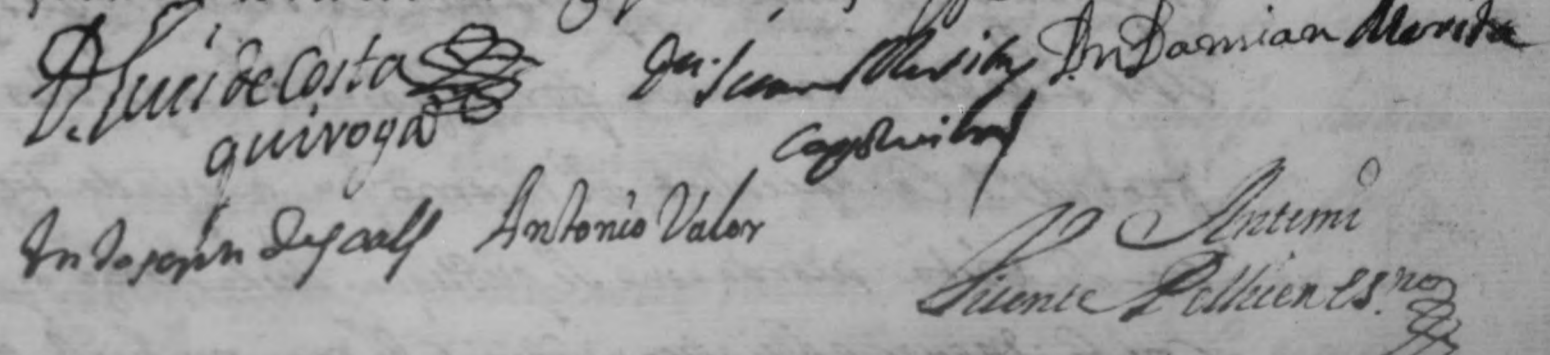 D. Luis de Costa
quiroga
Dn. Juan Merita
Capdevila
Dn Damian Merita
Dn Joseph Descals
Antonio Valor
Ante mi
Vicente Pellicer Es.no